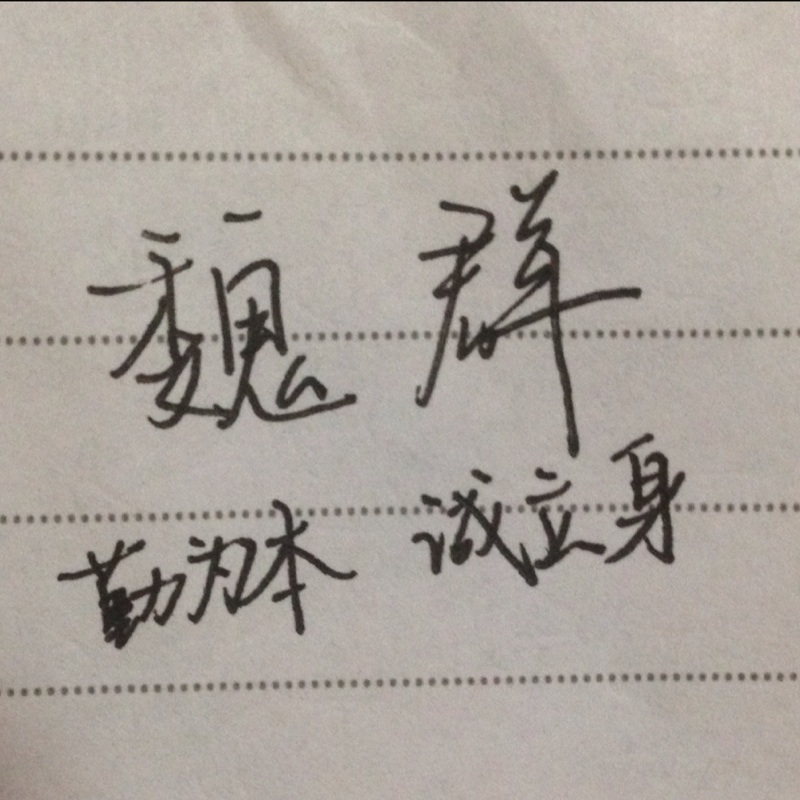 魏群
勤为本 诚立身